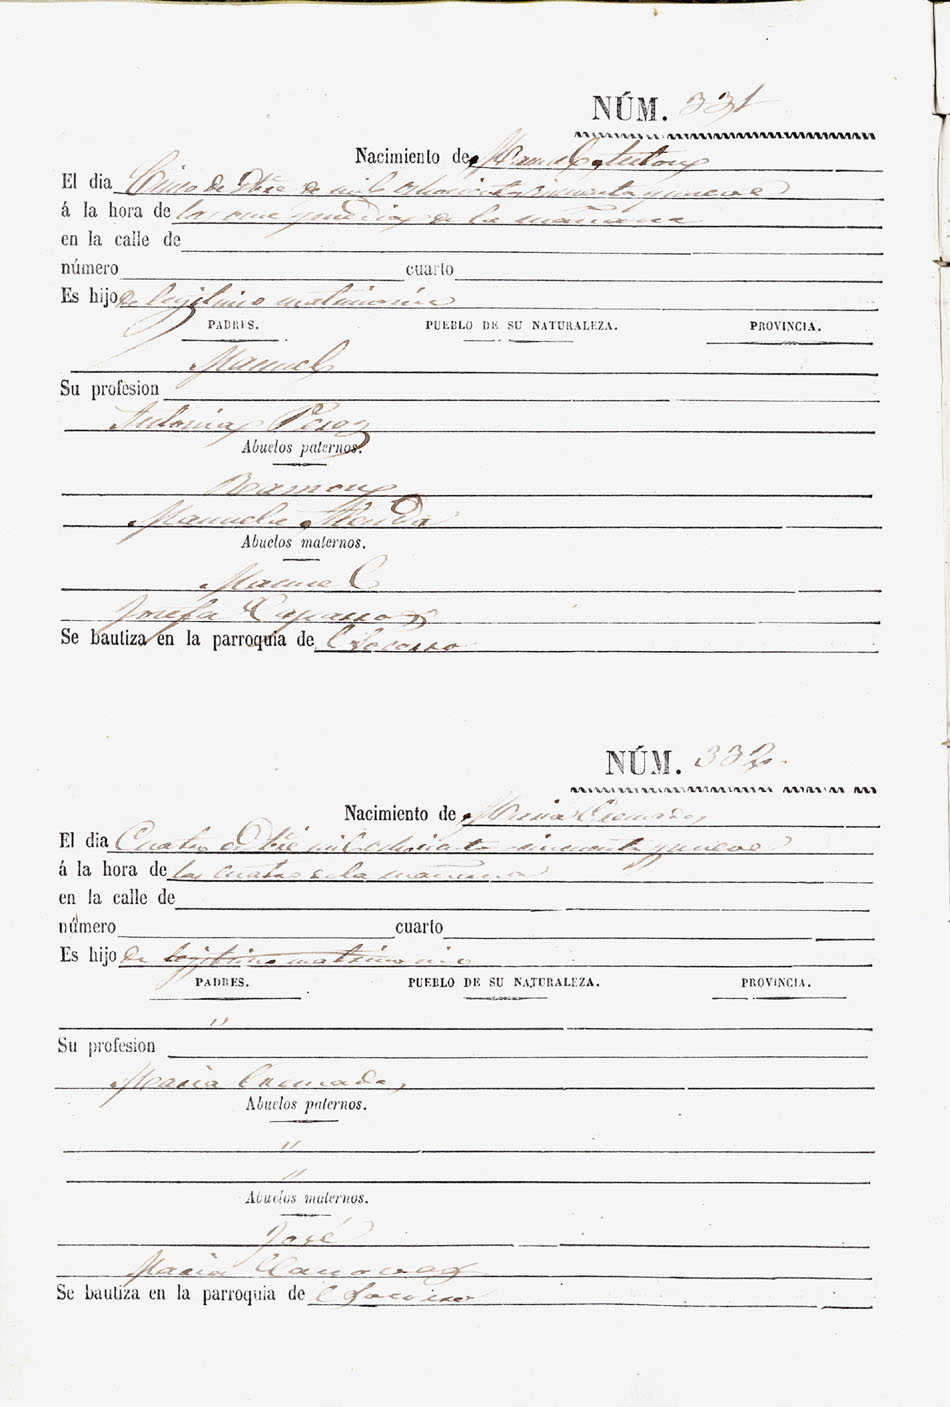 NÚM. 331
Nacimiento de Manuel Anton
El dia Cinco de Dbre de mil ochocientos cincuenta y nueve
á la hora de las once y media de la mañana
en la calle de
número cuarto
Es hijo de legitimo matrimonio
PADRES. PUEBLO DE SU NATURALEZA. PROVINCIA.
Manuel
Su profesion
Antonia Perez
Abuelos paternos.
Ramon
Manuela
Abuelos maternos.
Manuel
Josefa
Se bautiza en la parroquia de
NÚM. 332
Nacimiento de Maria Cremades
El dia Cuatro Dbre mil ochocientos cincuenta y nueve
á la hora de las cuatro de la mañana
en la calle de
número cuarto
Es hijo de legitimo matrimonio
PADRES. PUEBLO DE SU NATURALEZA. PROVINCIA.
"
Su profesion
Maria Cremades
Abuelos paternos.
"
"
Abuelos maternos.
José
Maria
Se bautiza en la parroquia de